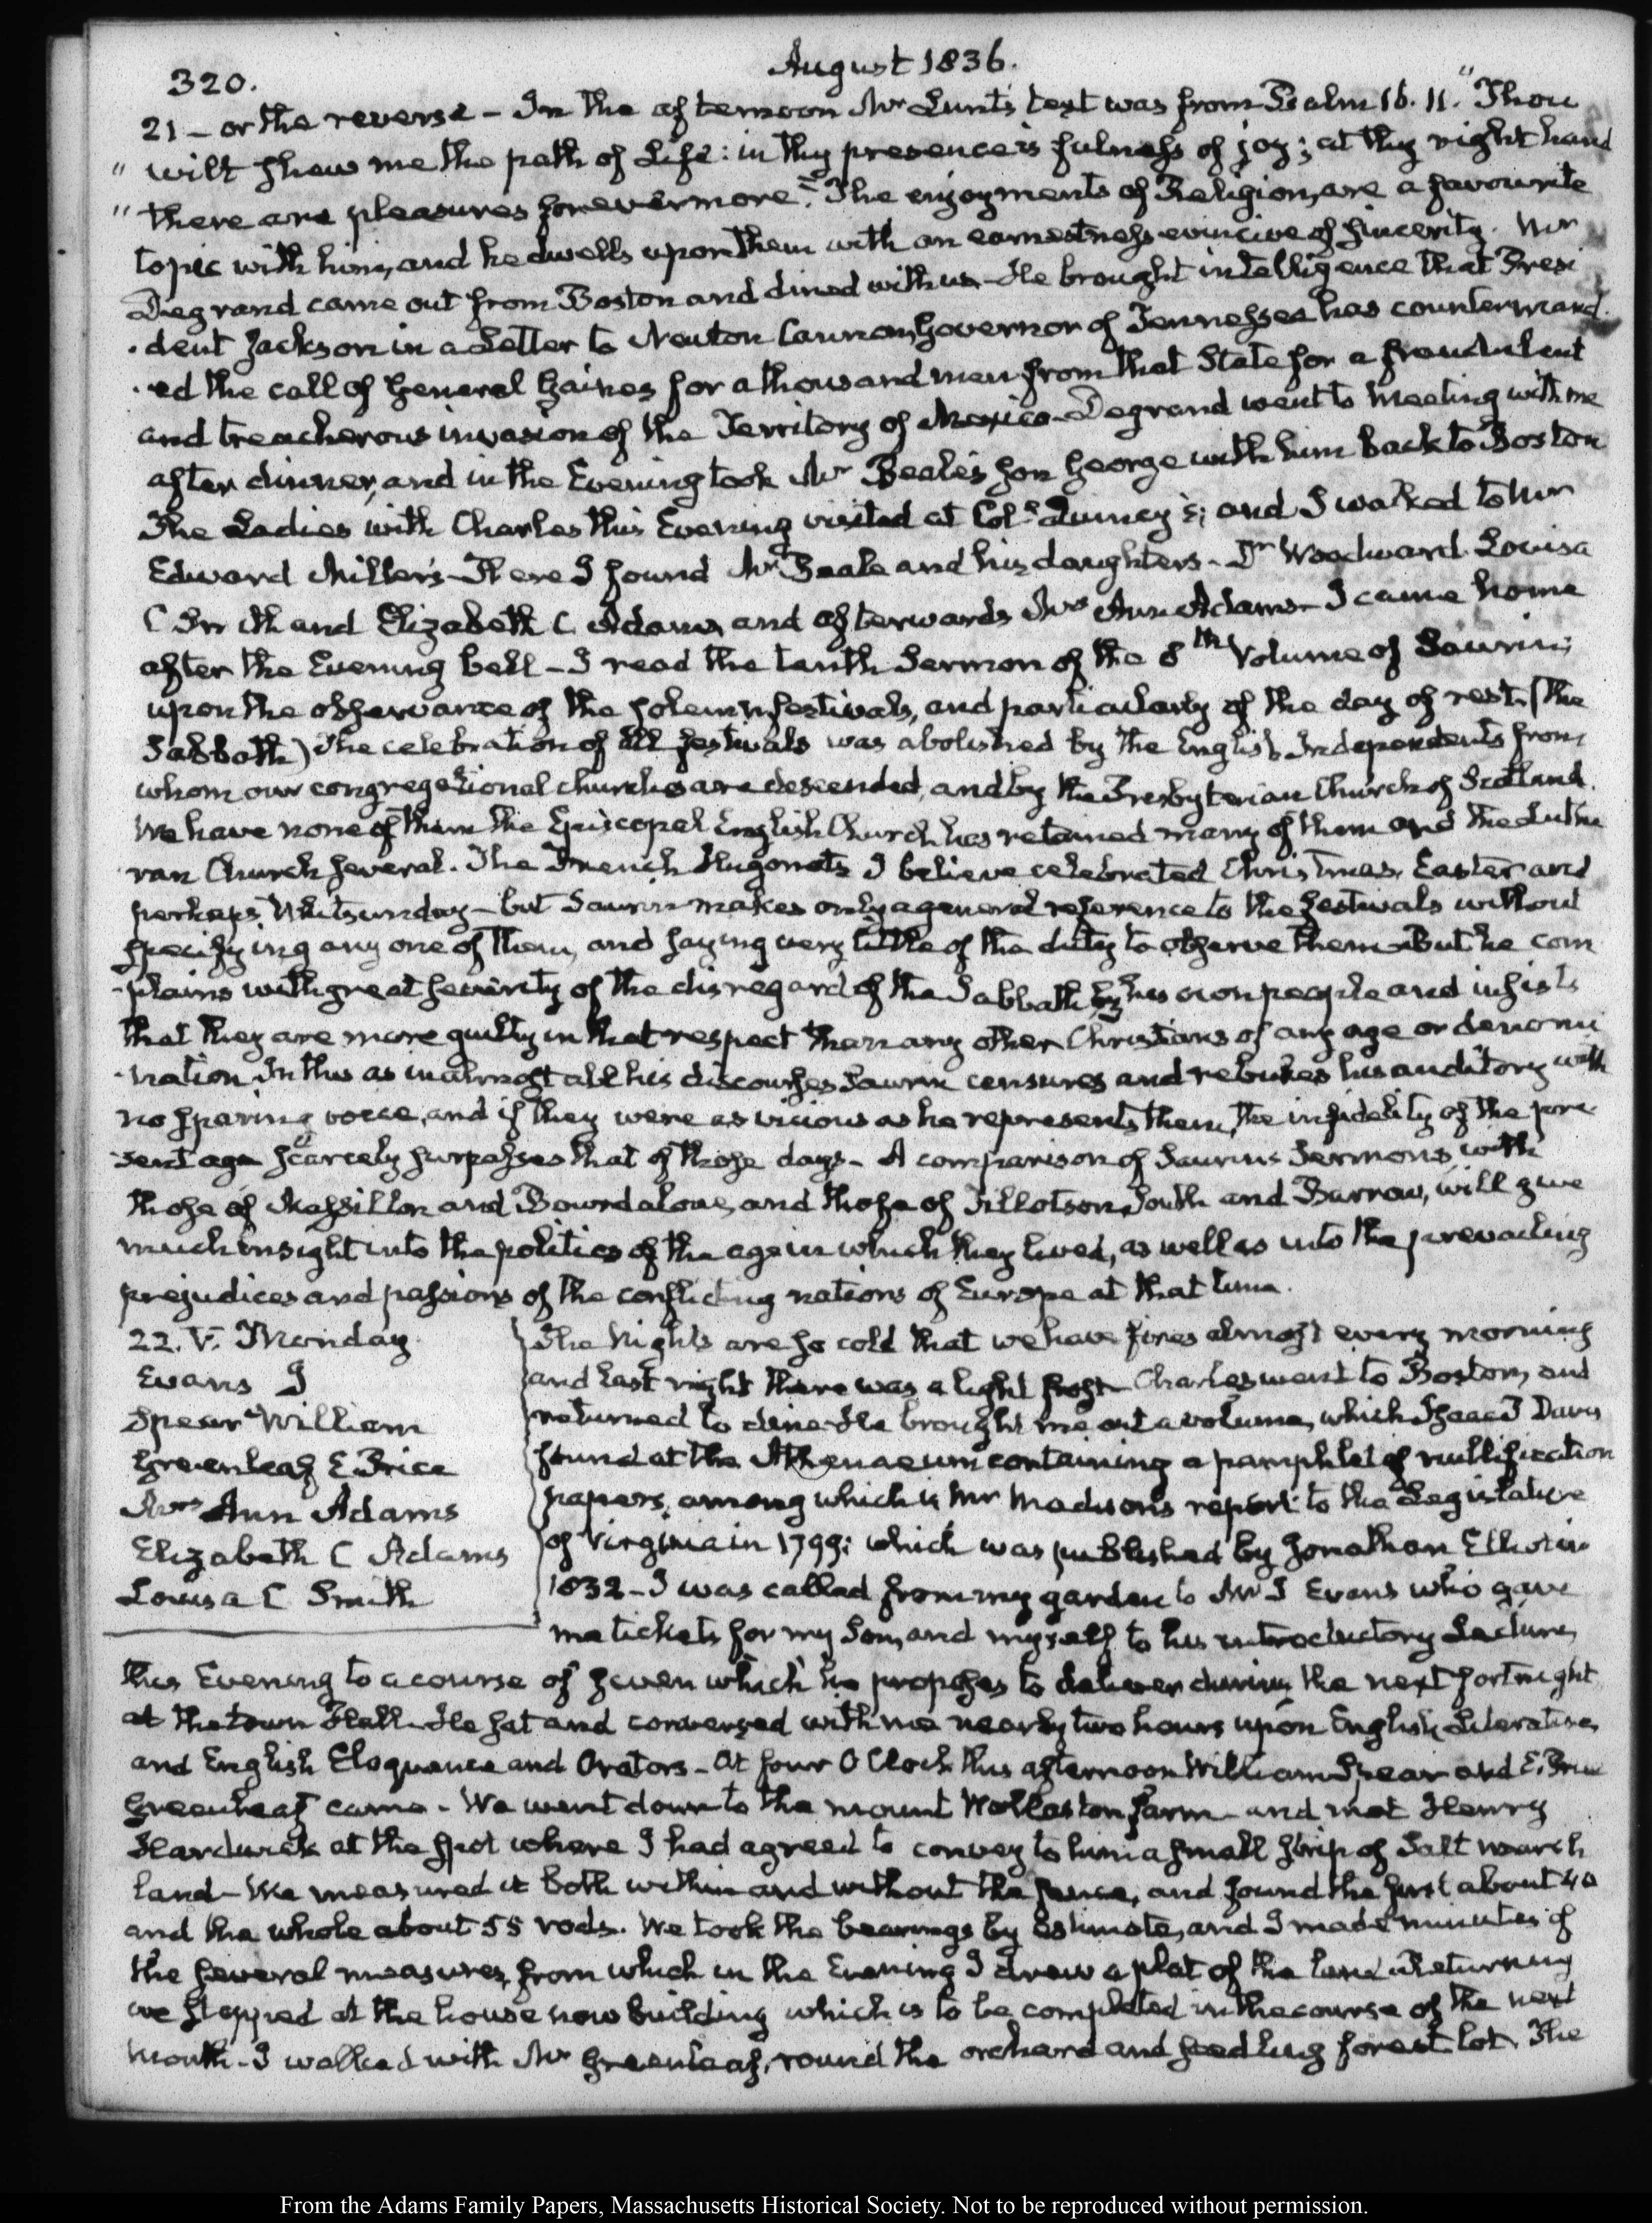 320.
August 1836.
21 — or the reverse — In the afternoon Mr Lunt's text was from Psalm 16. 11. "Thou
" wilt shew me the path of Life: in thy presence is fulness of joy; at thy right hand
" there are pleasures forevermore." The enjoyments of Religion, are a favourite
topic with him, and he dwells upon them with an earnestness evincive of sincerity. Mr
Degrand came out from Boston and dined with us — He brought intelligence that Presi
-dent Jackson in a Letter to Newton Cannon, Governor of Tennessee has countermand
-ed the call of General Gaines for a thousand men from that State for a fraudulent
and treacherous invasion of the Territory of Mexico — Degrand went to Meeting with me
after dinner, and in the Evening took Mr Beale's son George with him back to Boston
The Ladies with Charles this Evening visited at Col. Quincy's; and I walked to Mr
Edward Miller's — There I found Mr Beale and his daughters — Dr Woodward. Louisa
C Smith and Elizabeth C Adams, and afterwards Mrs Ann Adams — I came home
after the Evening bell — I read the tenth Sermon of the 8th Volume of Saurin;
upon the observance of the solemn festivals, and particularly of the day of rest. (the
Sabbath) The celebration of all festivals was abolished by the English Independents from
whom our congregational churches are descended, and by the Presbyterian Church of Scotland.
We have none of them the Episcopal English Church has retained many of them and the Luthe
ran Church several. The French Hugonots I believe celebrated Christmas, Easter and
perhaps Whitsunday — but Saurin makes only a general reference to the festivals without
specifying any one of them, and saying very little of the duty to observe them — But he com
-plains with great severity of the disregard of the Sabbath by his own people and insists
that they are more guilty in that respect than any other Christians of any age or denomi
-nation In this as in almost all his discourses Saurin censures and rebukes his auditory with
no sparing voice, and if they were as vicious as he represents them, the infidelity of the pre
-sent age scarcely surpasses that of those days — A comparison of Saurin's Sermons, with
those of Massillon and Bourdaloue, and those of Tillotson, South and Barrow, will give
much insight into the politics of the age in which they lived, as well as into the prevailing
prejudices and passions of the conflicting nations of Europe at that time.
22. V. Monday.
Evans J
Spear William
Greenleaf E Price
Mrs Ann Adams
Elizabeth C Adams
Louisa C Smith
The Nights are so cold that we have fires almost every morning
and last night there was a light frost — Charles went to Boston, and
returned to dine — He brought me out a volume, which Isaac P Davis
found at the Athenaeum containing a pamphlet of nullification
papers, among which is Mr Madison's report to the Legislature
of Virginia in 1799; which was published by Jonathan Elliot in
1832 — I was called from my garden to Mr J Evans who gave
me tickets for my Son, and myself to his introductory Lecture,
this Evening to a course of seven which he proposes to deliver during the next fortnight
at the town Hall — He sat and conversed with me nearly two hours upon English Literature,
and English Eloquence and Orators — At four O'Clock this afternoon William Spear and E. Price
Greenleaf came — We went down to the mount Wollaston farm — and met Henry
Hardwick at the spot where I had agreed to convey to him a small strip of Salt marsh
land — We measured it both within and without the fence, and found the first about 40
and the whole about 55 rods. We took the bearings by estimate, and I made minutes of
the several measures, from which in the Evening I drew a plat of the land Returning
we stopped at the house now building which is to be completed in the course of the next
month — I walked with Mr Greenleaf, round the orchard and seedling forest lot. The
From the Adams Family Papers, Massachusetts Historical Society. Not to be reproduced without permission.